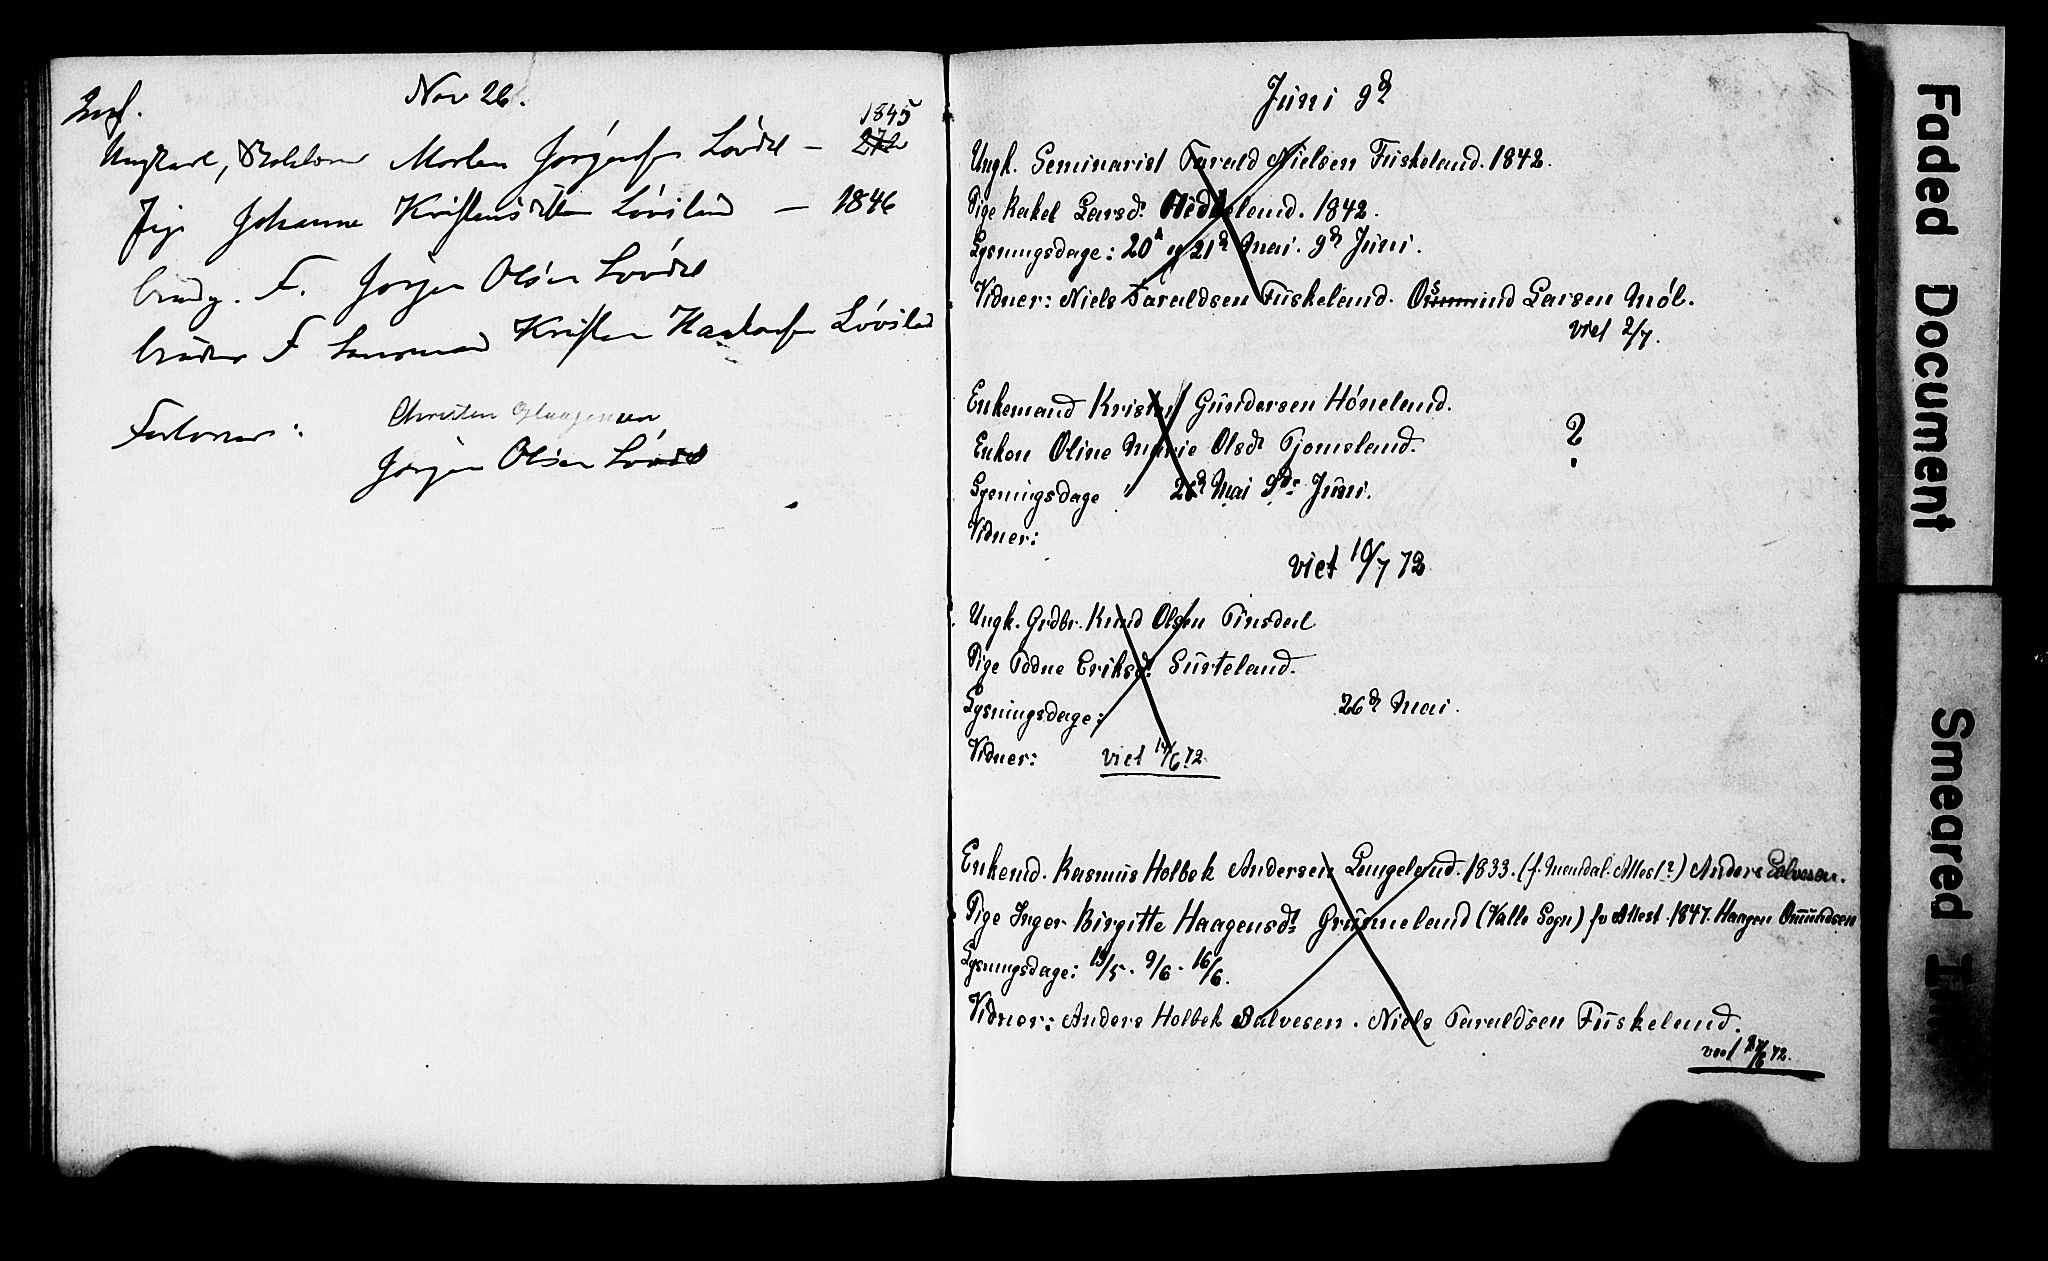 Nov 26.
1845
Ungkarl, Morten Jørgensen Løvdal — 272
Pige Johanne Kristensdatter Løvsland — 1846
brudg. F. Jørgen Olsen Løvdal
brudens F Kristen Løvsland
Forlovere:
Christen Haagensen
Jørgen Olsen Løvdal
Juni 9d
Ungk. Seminarist Tarald Nielsen Fuskeland. 1842.
Pige Rakel Larsd. Heddeland. 1842.
Lysningsdage: 20d og 21d Mai. 9d Juni.
Vidner: Niels Taraldsen Fuskeland. Osmund Larsen Møl.
viet 2/7.
Enkemand Kristen Gundersen Høneland.
Enken Oline Marie Olsdr Tjomsland.
?
Lysningsdage: 26d Mai 9de Juni.
Vidner:
viet 10/7 72
Ungk. Grdbr. Knud Olsen Tinsdal
Pige Todne Eriksd. Surteland.
Lysningsdage: 26d Mai.
Vidner: viet 14/6 72
Enkemd. Rasmus Holbek Andersen Lengeland. 1833. (f. Mandal. Attest?) Anders Salvesen.
Pige Inger Birgitte Haagensdt. Grummeland (Valle Sogn) fv Attest. 1847. Haagen Omundsen
Lysningsdage: 19/5. 9/6. 16/6.
Vidner: Anders Holbek Salvesen. Niels Taraldsen Fuskeland.
viet 27/6 72.
Faded Document
Smeared